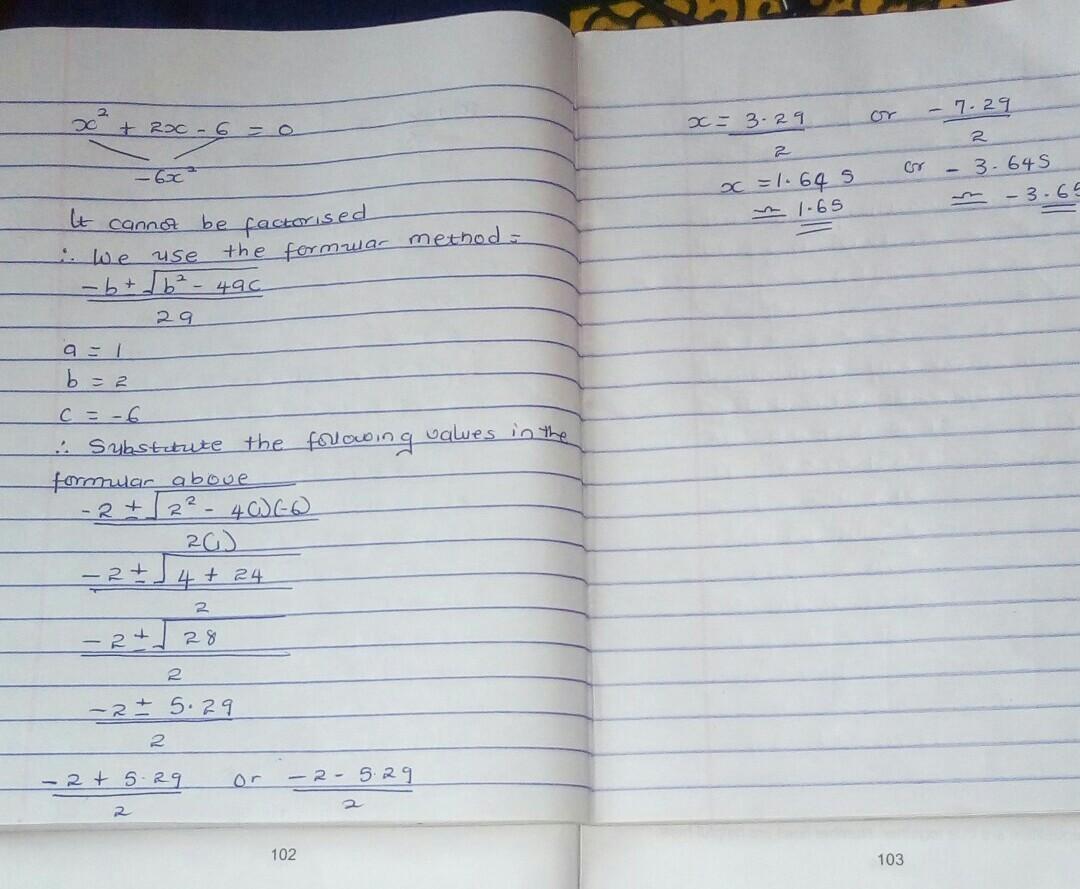 x² + 2x - 6 = 0
-6x²
It cannot be factorised
∴ We use the formular method =
-b ± √b² - 4ac
2a
a = 1
b = 2
c = -6
∴ Substitute the following values in the
formular above
-2 ± √2² - 4(1)(-6)
2(1)
-2 ± √4 + 24
2
-2 ± √28
2
-2 ± 5.29
2
-2 + 5.29 or -2 - 5.29
2 2
102
x = 3.29 or - 7.29
2 2
x = 1.645 or - 3.645
≃ 1.65 ≃ - 3.65
103